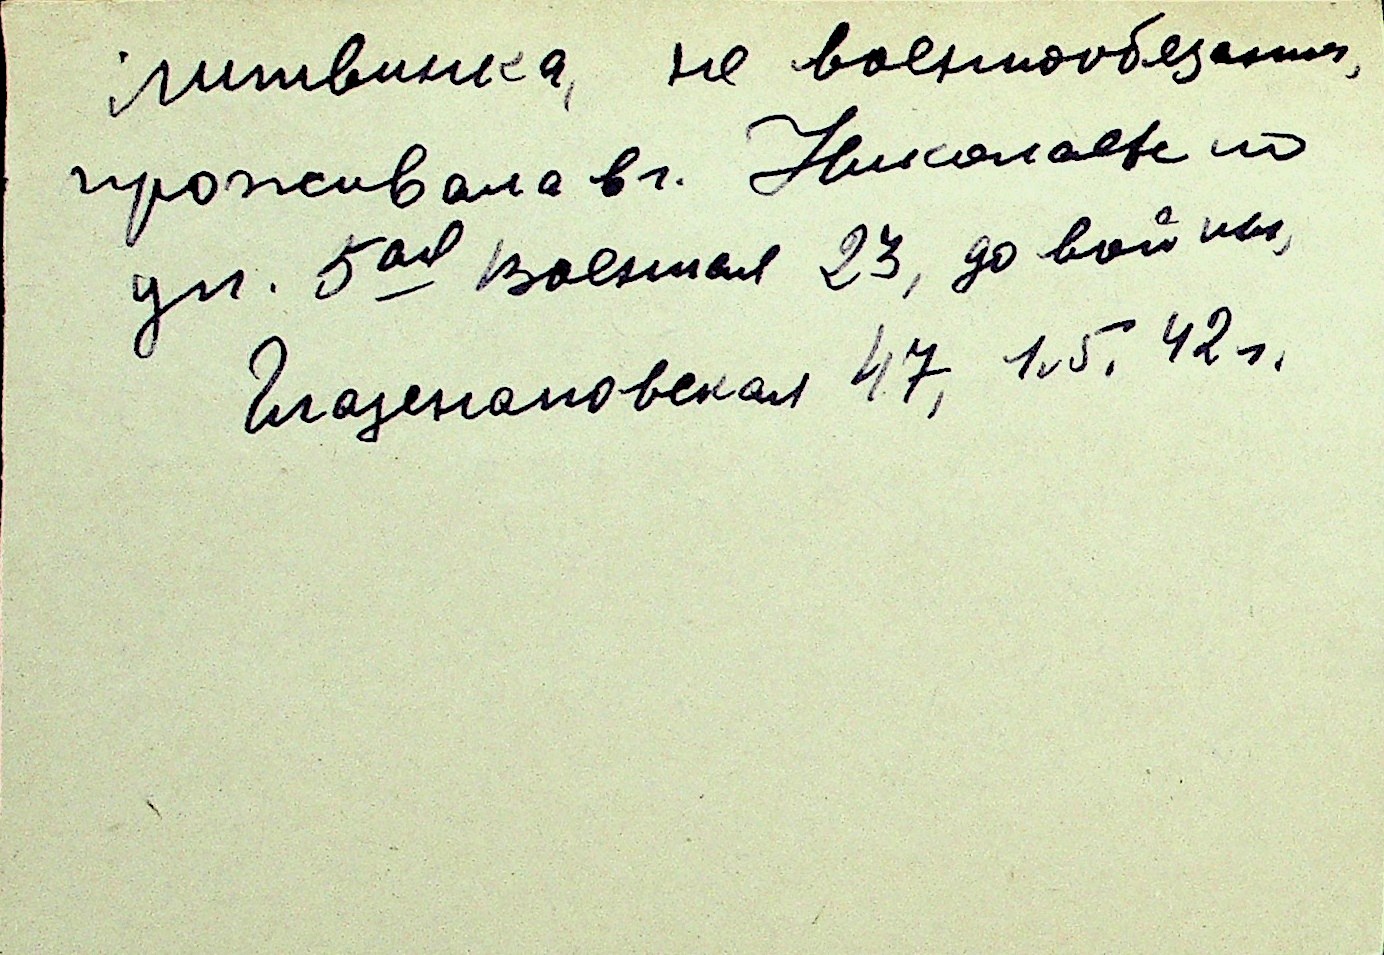 литвинка, не военнообязанная,
проживала в г. Николаеве по
ул. 5ая Военная 23, до войны,
Глазенаповская 47, 1.5.42 г.